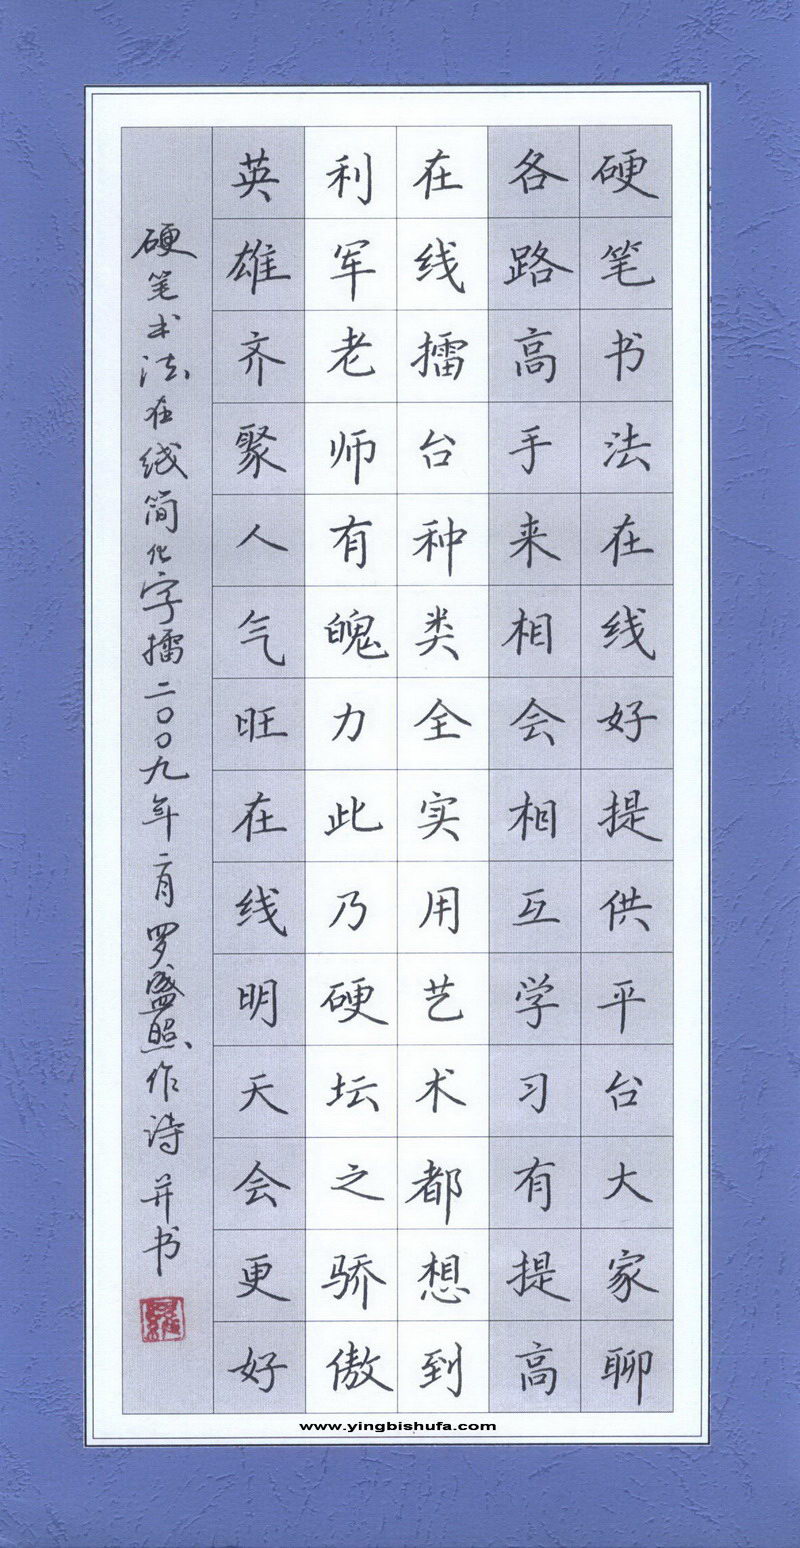 硬笔书法在线好提供平台大家聊
各路高手来相会相互学习有提高
在线擂台种类全实用艺术都想到
利军老师有魄力此乃硬坛之骄傲
英雄齐聚人气旺在线明天会更好
硬笔书法在线简化字擂二〇〇九年二月罗盛照作诗并书
www.yingbishufa.com